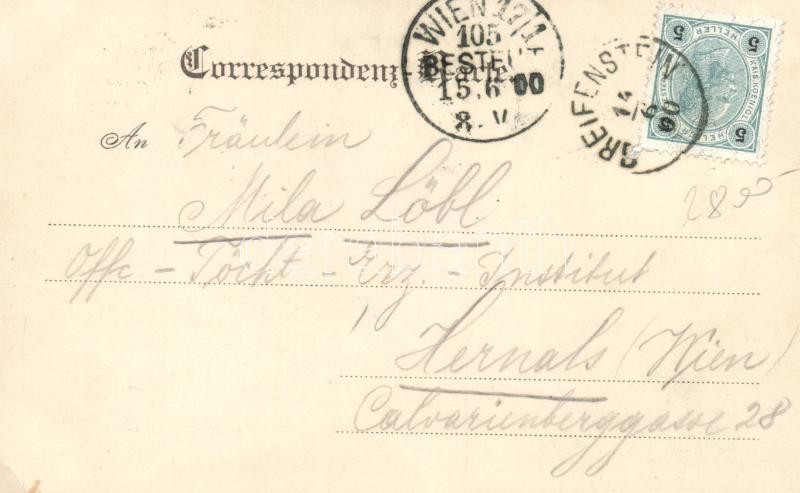 Correspondenz-Karte
WIEN 17/1
105
BESTELLT
15.6.00
8. V
GREIFENSTEIN
14 6 00
5 HELLER 5
An Fräulein
Mila Löbl
Offc - Töcht - Erz. - Institut
Hernals (Wien)
Calvarienberggasse 28